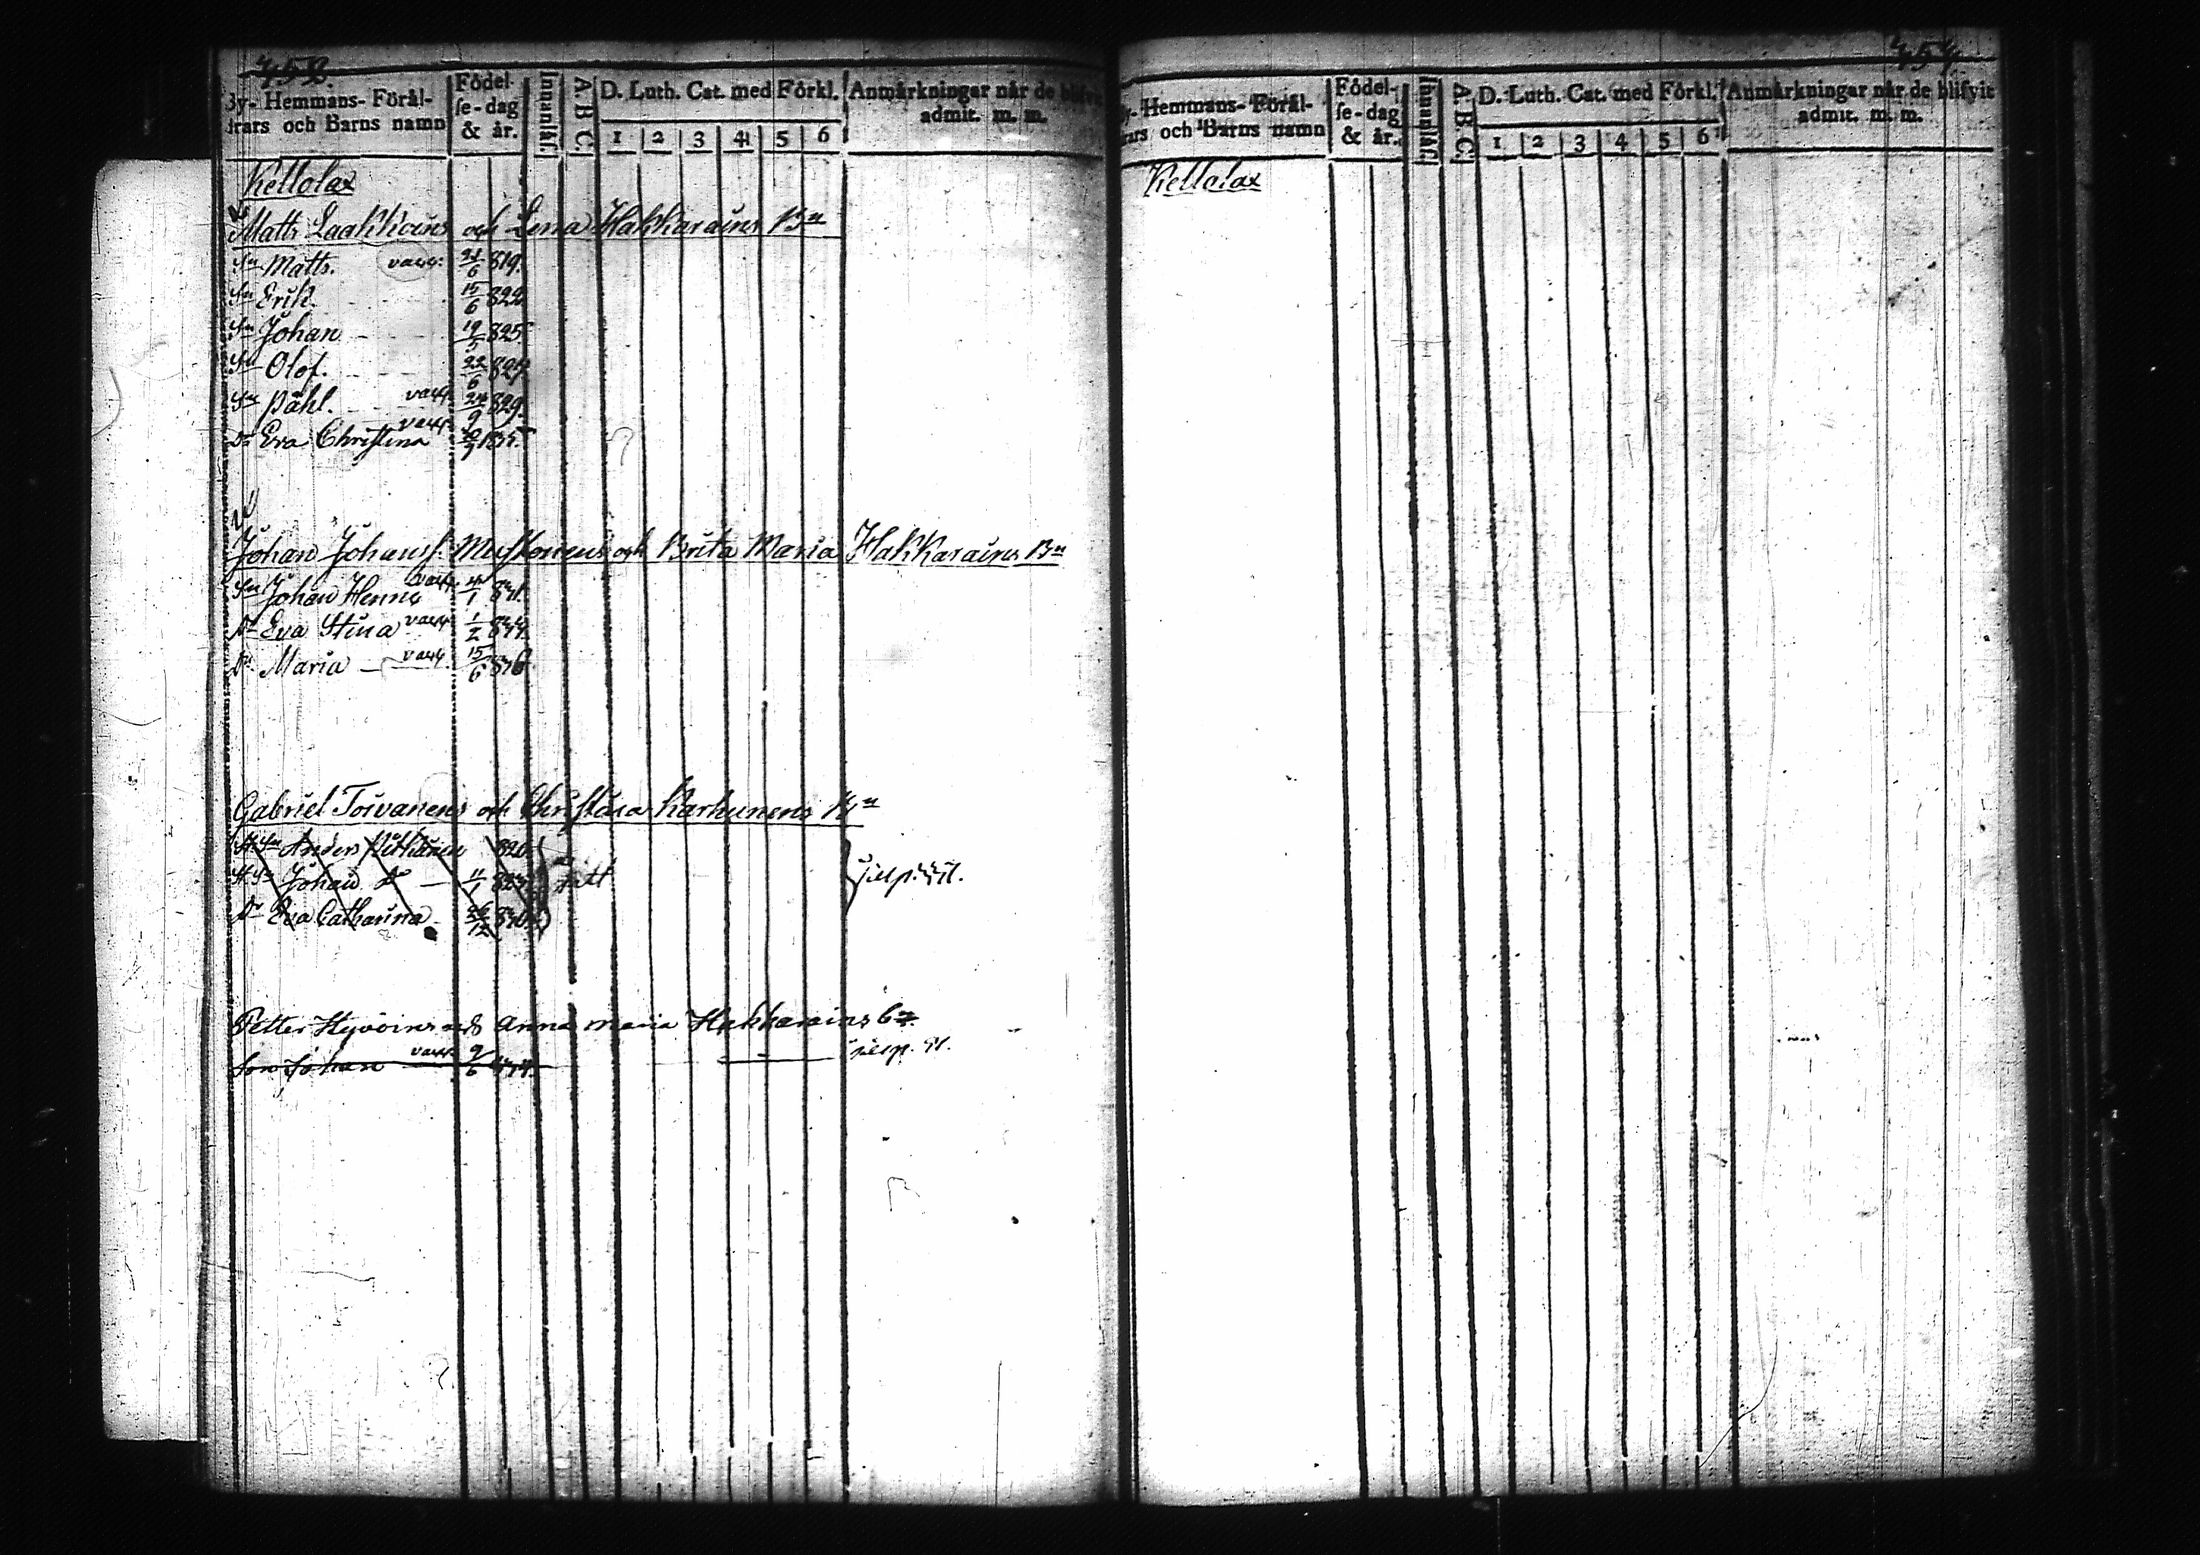 By- Hemmans- Föräl-
drars och Barns namn
Födel-
se-dag
& år.
Innanläs.
A. B C.
D. Luth. Cat. med Förkl.
1 2 3 4 5 6
Anmärkningar når de blifvit
admit. m. m.
Kellolax
Matts Laakkoins och Lena Hakkarains Bn
Sn Matts. vacc. 21/6 819.
Sn Erik. 15/6 822.
Sn Johan 19/5 825.
Sn Olof. 22/6 827.
Sn Påhl. vacc. 24/9 829.
Dr Eva Christina vacc.
Johan Johanss. Mustonens och Brita Maria Hakkarains Bn
Sn Johan Henric vacc. 4/1 831.
Dr Eva Stina vacc. 1/2
Dr Maria vacc. 15/6 836
Gabriel Toivanens och Christina Karhunens Bn
St. Sn Anders 820.
St. Sn Johan Do 11/1
Dr Eva Catharina 26/12
Petter Hyvoins och Anna Maria Hakkarains Bn
Son Johan vacc. 9/6
454
By- Hemmans- Föräl-
drars och Barns namn
Födel-
se-dag
& år.
Innanläs.
A. B C.
D. Luth. Cat. med Förkl.
1 2 3 4 5 6
Anmärkningar når de blifvit
admit. m. m.
Kellolax